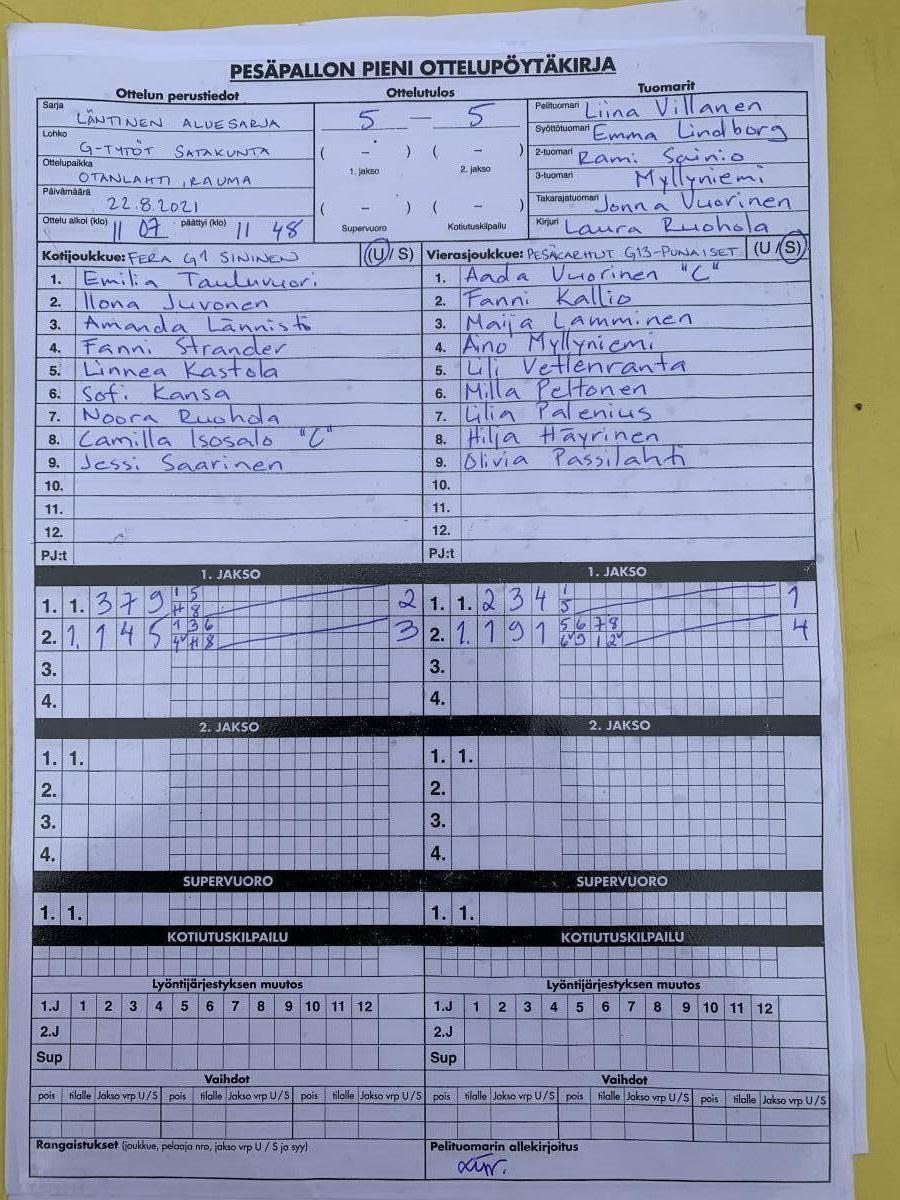 PESÄPALLON PIENI OTTELUPÖYTÄKIRJA
Ottelun perustiedot
Sarja LÄNTINEN ALUESARJA
Lohko G-TYTÖT SATAKUNTA
Ottelupaikka OTANLAHTI, RAUMA
Päivämäärä 22.8.2021
Ottelu alkoi (klo) 11 07 päättyi (klo) 11 48
Ottelutulos
5 — 5
( – ) ( – )
1. jakso 2. jakso
( – ) ( – )
Supervuoro Kotiutuskilpailu
Tuomarit
Pelituomari Liina Villanen
Syöttötuomari Emma Lindborg
2-tuomari Rami Sainio
3-tuomari Myllyniemi
Takarajatuomari Jonna Vuorinen
Kirjuri Laura Ruohola
Kotijoukkue: FERA G1 SININEN (U / S)
1. Emilia Tauluvuori
2. Ilona Juvonen
3. Amanda Lännistö
4. Fanni Strander
5. Linnea Kastola
6. Sofi Kansa
7. Noora Ruohola
8. Camilla Isosalo "C"
9. Jessi Saarinen
10.
11.
12.
PJ:t
Vierasjoukkue: PESÄKARHUT G13-PUNAISET (U / S)
1. Aada Vuorinen "C"
2. Fanni Kallio
3. Maija Lamminen
4. Aino Myllyniemi
5. Lili Vetlenranta
6. Milla Peltonen
7. Lilia Palenius
8. Hilja Häyrinen
9. Olivia Passilahti
10.
11.
12.
PJ:t
1. JAKSO 1. JAKSO
1. 1. 3 7 9 1 5 2
8
2. 1. 1 4 5 1 3 6 3
8
3.
4.
1. 1. 2 3 4 1 1
5
2. 1. 1 9 1 5 6 7 8 4
6 9 1 2
3.
4.
2. JAKSO 2. JAKSO
1. 1. 1. 1.
2. 2.
3. 3.
4. 4.
SUPERVUORO SUPERVUORO
1. 1. 1. 1.
KOTIUTUSKILPAILU KOTIUTUSKILPAILU
Lyöntijärjestyksen muutos Lyöntijärjestyksen muutos
1.J 1 2 3 4 5 6 7 8 9 10 11 12 1.J 1 2 3 4 5 6 7 8 9 10 11 12
2.J 2.J
Sup Sup
Vaihdot Vaihdot
pois tilalle Jakso vrp U / S pois tilalle Jakso vrp U / S pois tilalle Jakso vrp U / S pois tilalle Jakso vrp U / S pois tilalle Jakso vrp U / S pois tilalle Jakso vrp U / S
Rangaistukset (joukkue, pelaaja nro, jakso vrp U / S ja syy) Pelituomarin allekirjoitus